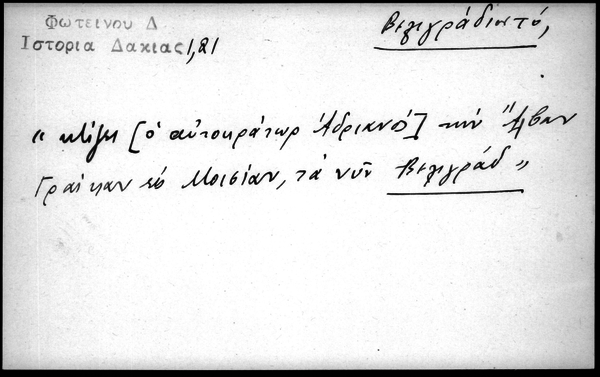 Φωτεινου Δ
Ιστορια Δακιας 1,81
Βελιγράδιν τό,
" κτίζει [ὁ αὐτοκράτωρ Ἀδριανός] τήν Ἄλβαν
Γραίκαν εἰς Μοισίαν, τά νῦν Βελιγράδ "